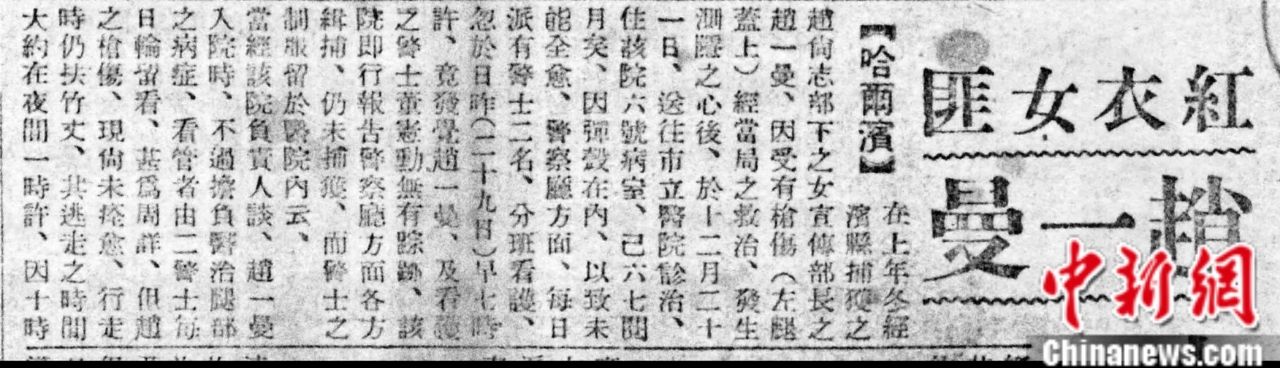 紅衣女匪
趙一曼
【哈爾濱】
在上年冬經
濱縣捕獲之
趙尙志部下之女宣傳部長之
趙一曼、因受有槍傷（左腿
蓋上）經當局之救治、發生
測隱之心後、於十二月二十
一日、送往市立醫院診治、
住該院六號病室、已六七閱
月矣、因彈殼在內、以致未
能全愈、警察廳方面、每日
派有警士二名、分班看護、
忽於日昨（二十九日）早七時
許、竟發覺趙一曼、及看護
之警士董憲動無有踪跡、該
院即行報告警察廳方面各方
緝捕、仍未捕獲、而警士之
制服留於醫院內云、
當經該院負責人談、趙一曼
入院時、不過擔負醫治腿部
之病症、看管者由二警士每
日輪留看、甚爲周詳、但趙
之槍傷、現尙未痊愈、行走
時仍扶竹丈、其逃走之時間
大約在夜間一時許、因十時
中新網
Chinanews.com